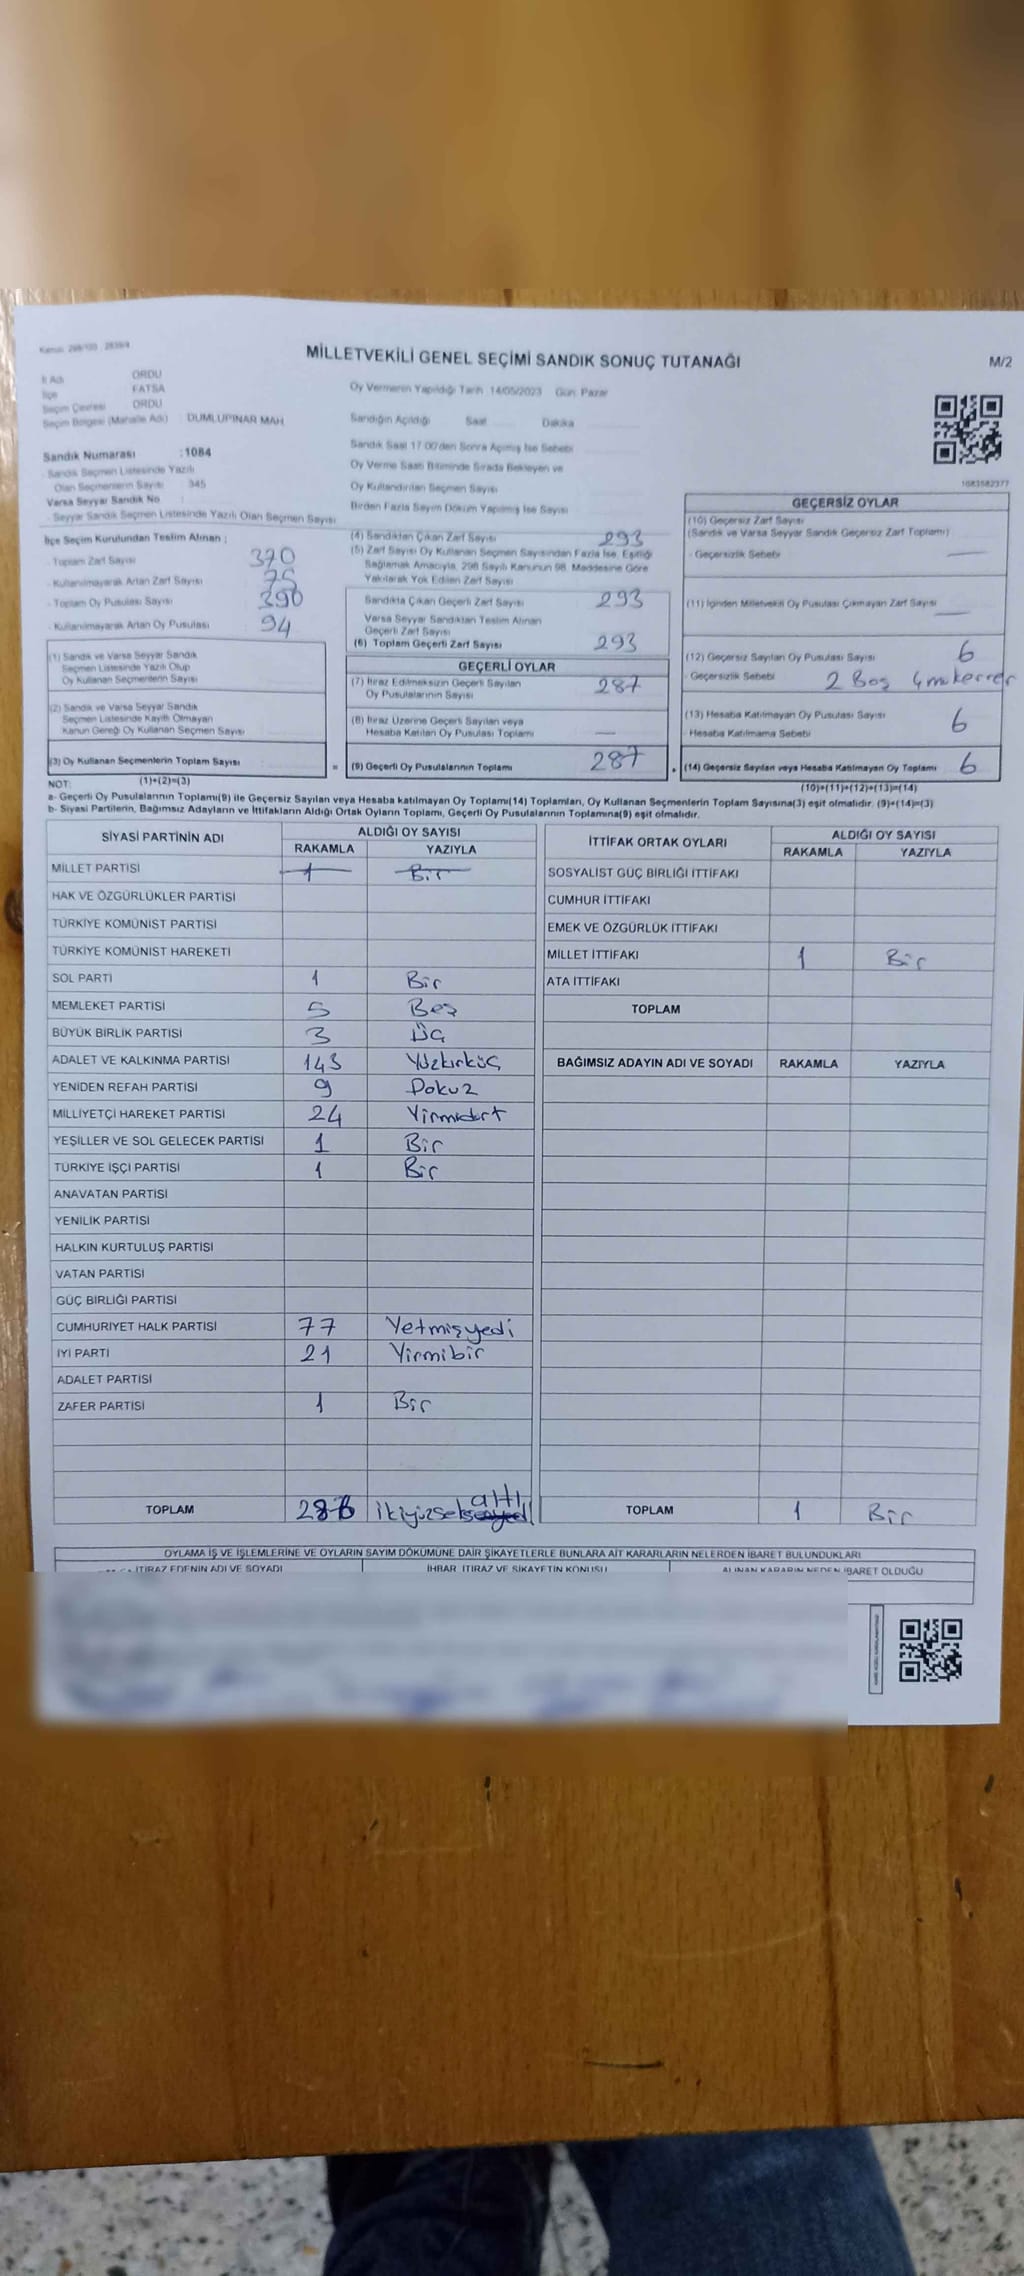 Kanun: 298/103 - 2839/4
MİLLETVEKİLİ GENEL SEÇİMİ SANDIK SONUÇ TUTANAĞI
M/2
İl Adı ORDU
İlçe FATSA
Seçim Çevresi ORDU
Seçim Bölgesi (Mahalle Adı) : DUMLUPINAR MAH
Sandık Numarası :1084
- Sandık Seçmen Listesinde Yazılı
Olan Seçmenlerin Sayısı 345
Varsa Seyyar Sandık No :
- Seyyar Sandık Seçmen Listesinde Yazılı Olan Seçmen Sayısı
İlçe Seçim Kurulundan Teslim Alınan ;
- Toplam Zarf Sayısı 370
- Kullanılmayarak Artan Zarf Sayısı 75
- Toplam Oy Pusulası Sayısı 390
- Kullanılmayarak Artan Oy Pusulası 94
(1) Sandık ve Varsa Seyyar Sandık
Seçmen Listesinde Yazılı Olup
Oy Kullanan Seçmenlerin Sayısı
(2) Sandık ve Varsa Seyyar Sandık
Seçmen Listesinde Kayıtlı Olmayan
Kanun Gereği Oy Kullanan Seçmen Sayısı
(3) Oy Kullanan Seçmenlerin Toplam Sayısı :
(1)+(2)=(3)
Oy Vermenin Yapıldığı Tarih 14/05/2023 Gün: Pazar
Sandığın Açıldığı Saat Dakika
Sandık Saat 17.00'den Sonra Açılmış İse Sebebi
Oy Verme Saati Bitiminde Sırada Bekleyen ve
Oy Kullandırılan Seçmen Sayısı
Birden Fazla Sayım Döküm Yapılmış İse Sayısı
(4) Sandıktan Çıkan Zarf Sayısı 293
(5) Zarf Sayısı Oy Kullanan Seçmen Sayısından Fazla İse, Eşitliği
Sağlamak Amacıyla, 298 Sayılı Kanunun 98. Maddesine Göre
Yakılarak Yok Edilen Zarf Sayısı
Sandıkta Çıkan Geçerli Zarf Sayısı 293
Varsa Seyyar Sandıktan Teslim Alınan
Geçerli Zarf Sayısı
(6) Toplam Geçerli Zarf Sayısı 293
GEÇERLİ OYLAR
(7) İtiraz Edilmeksizin Geçerli Sayılan
Oy Pusulalarının Sayısı 287
(8) İtiraz Üzerine Geçerli Sayılan veya
Hesaba Katılan Oy Pusulası Toplamı —
= (9) Geçerli Oy Pusulalarının Toplamı 287
1083582377
GEÇERSİZ OYLAR
(10) Geçersiz Zarf Sayısı
(Sandık ve Varsa Seyyar Sandık Geçersiz Zarf Toplamı)
- Geçersizlik Sebebi —
(11) İçinden Milletvekili Oy Pusulası Çıkmayan Zarf Sayısı —
(12) Geçersiz Sayılan Oy Pusulası Sayısı 6
- Geçersizlik Sebebi 2 Boş 4 mükerrer
(13) Hesaba Katılmayan Oy Pusulası Sayısı 6
- Hesaba Katılmama Sebebi
+ (14) Geçersiz Sayılan veya Hesaba Katılmayan Oy Toplamı 6
(10)+(11)+(12)+(13)=(14)
NOT:
a- Geçerli Oy Pusulalarının Toplamı(9) ile Geçersiz Sayılan veya Hesaba katılmayan Oy Toplamı(14) Toplamları, Oy Kullanan Seçmenlerin Toplam Sayısına(3) eşit olmalıdır. (9)+(14)=(3)
b- Siyasi Partilerin, Bağımsız Adayların ve İttifakların Aldığı Ortak Oyların Toplamı, Geçerli Oy Pusulalarının Toplamına(9) eşit olmalıdır.
SİYASİ PARTİNİN ADI ALDIĞI OY SAYISI
RAKAMLA YAZIYLA
MİLLET PARTİSİ 1 Bir
HAK VE ÖZGÜRLÜKLER PARTİSİ
TÜRKİYE KOMÜNİST PARTİSİ
TÜRKİYE KOMÜNİST HAREKETİ
SOL PARTİ 1 Bir
MEMLEKET PARTİSİ 5 Beş
BÜYÜK BİRLİK PARTİSİ 3 Üç
ADALET VE KALKINMA PARTİSİ 143 Yüzkırküç
YENİDEN REFAH PARTİSİ 9 Dokuz
MİLLİYETÇİ HAREKET PARTİSİ 24 Yirmidört
YEŞİLLER VE SOL GELECEK PARTİSİ 1 Bir
TÜRKİYE İŞÇİ PARTİSİ 1 Bir
ANAVATAN PARTİSİ
YENİLİK PARTİSİ
HALKIN KURTULUŞ PARTİSİ
VATAN PARTİSİ
GÜÇ BİRLİĞİ PARTİSİ
CUMHURİYET HALK PARTİSİ 77 Yetmişyedi
İYİ PARTİ 21 Yirmibir
ADALET PARTİSİ
ZAFER PARTİSİ 1 Bir
TOPLAM 286 ikiyüzseksen altı
İTTİFAK ORTAK OYLARI ALDIĞI OY SAYISI
RAKAMLA YAZIYLA
SOSYALİST GÜÇ BİRLİĞİ İTTİFAKI
CUMHUR İTTİFAKI
EMEK VE ÖZGÜRLÜK İTTİFAKI
MİLLET İTTİFAKI 1 Bir
ATA İTTİFAKI
TOPLAM
BAĞIMSIZ ADAYIN ADI VE SOYADI RAKAMLA YAZIYLA
TOPLAM 1 Bir
OYLAMA İŞ VE İŞLEMLERİNE VE OYLARIN SAYIM DÖKÜMÜNE DAİR ŞİKAYETLERLE BUNLARA AİT KARARLARIN NELERDEN İBARET BULUNDUKLARI
İTİRAZ EDENİN ADI VE SOYADI İHBAR, İTİRAZ VE ŞİKAYETİN KONUSU ALINAN KARARIN NEDEN İBARET OLDUĞU